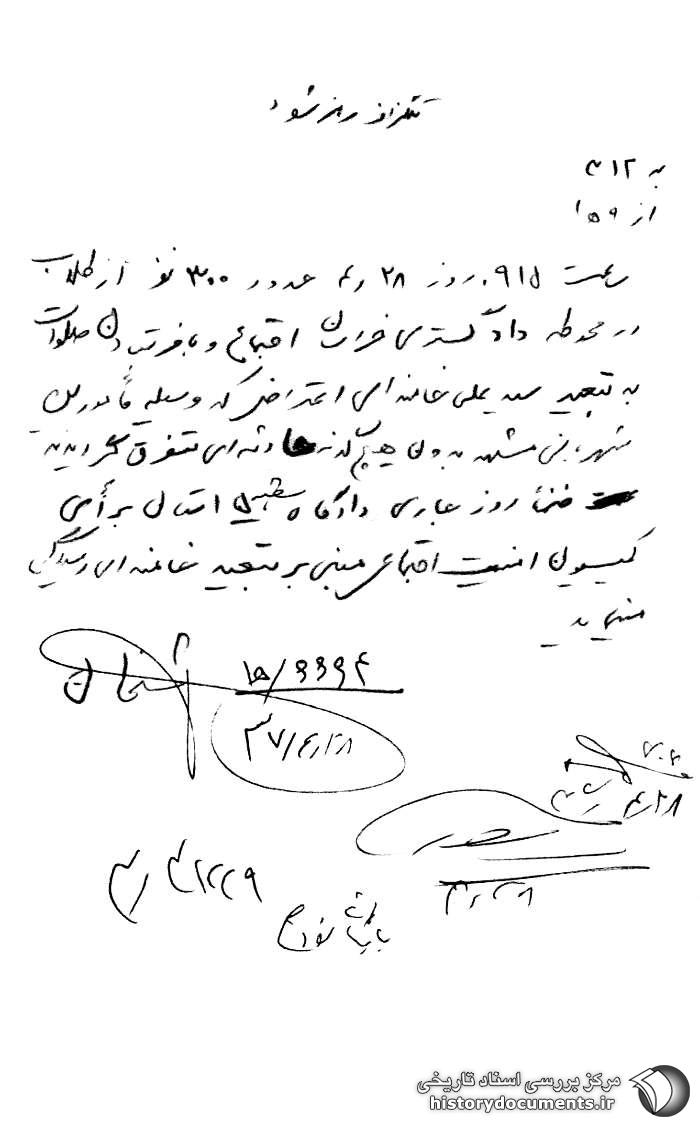 تلگراف رمز شود
به ۳۱۲
از ۹ ه‍ ۱
ساعت ۹۱۵ روز ۲۸ / ۴ حدود ۳۰۰ نفر از طلاب
در محوطه دادگستری خراسان اجتماع و با فرستادن صلوات
به تبعید سید علی خامنه‌ای اعتراض که وسیله مأمورین
شهربانی مشهد بدون هیچگونه حادثه‌ای متفرق گردیدند
ضمناً روز جاری دادگاه استان برأی
کمیسیون امنیت اجتماعی مبنی بر تبعید خامنه‌ای رسیدگی
مینماید
شیخان
۱ه‍/۶۶۹۴
۳۷/۴/۲۸
۴/۲۸
۴/۲۸
بایگانی شود
مرکز بررسی اسناد تاریخی
historydocuments.ir